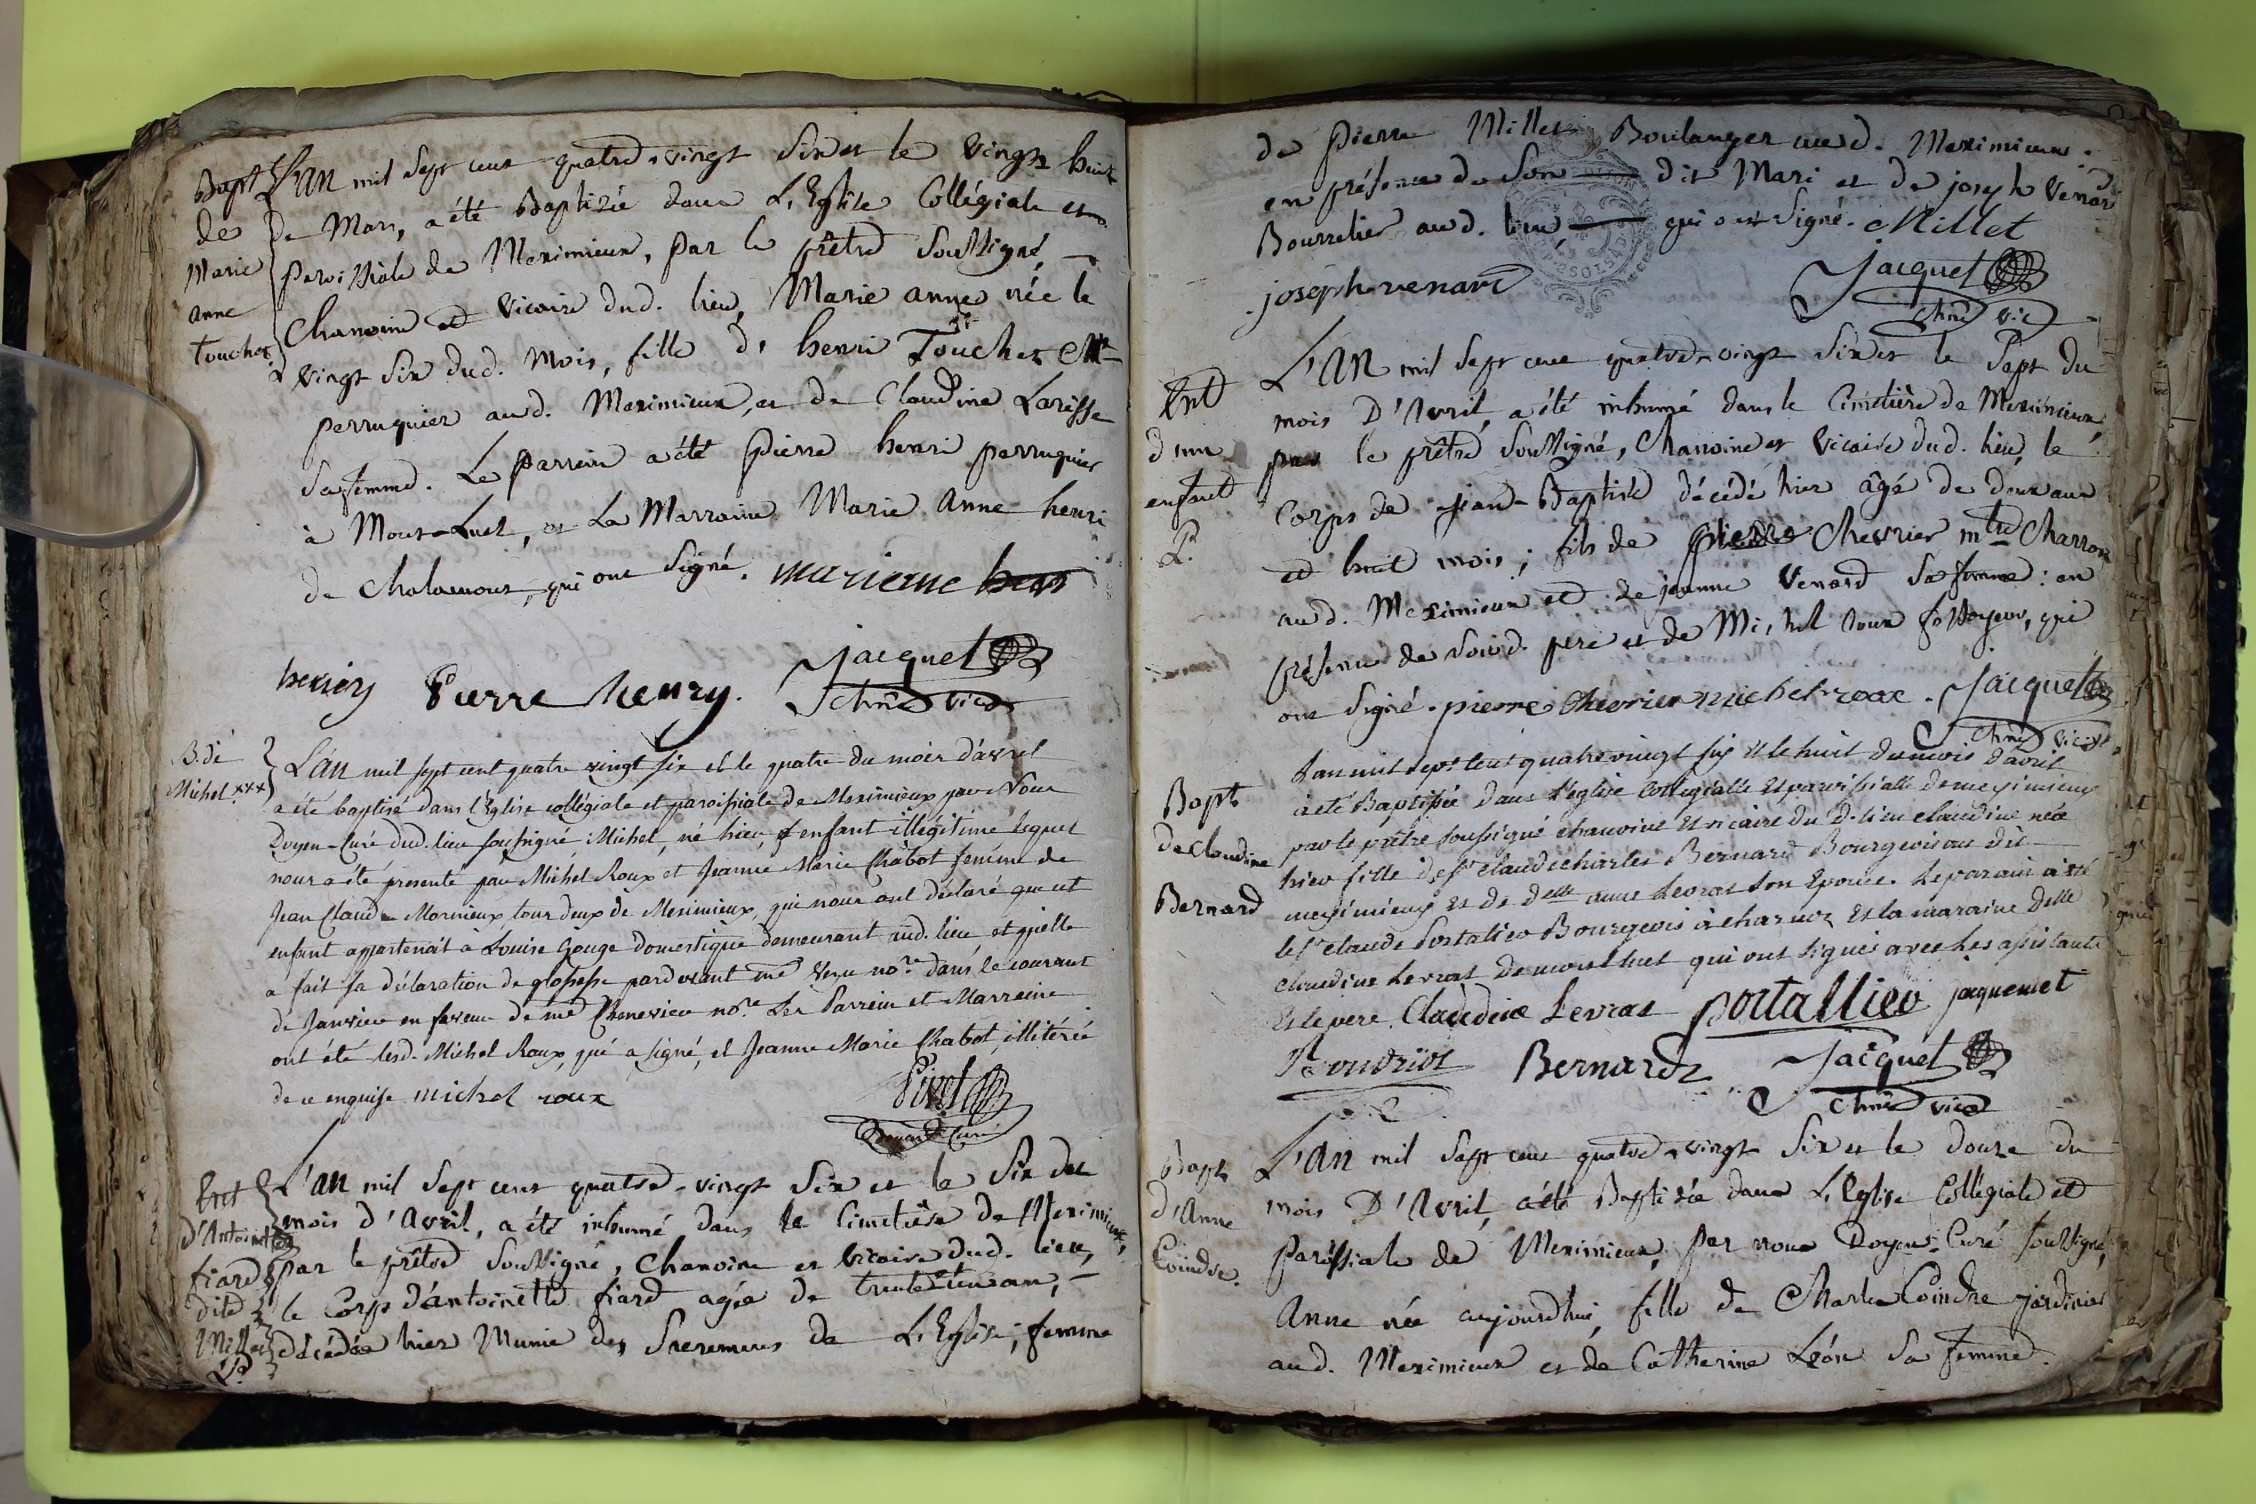 Bapt
de
Marie
anne
Touchet
L'AN mil sept cent quatre-vingt Six et le Vingt huit
de Mars, a été Baptizée dans L'Eglise Collégiale et
paroissiale de Meximieux, par le prêtre Soussigné,
Chanoine et Vicaire dud. lieu, Marie anne née le
vingt Six dud. mois, fille d' henri Touchet Mtre
perruquier aud. Meximieux, et de Claudine Larisse
Sa femme. Le parrein a été pierre henri perruquier
à Mont-Luel, et La Marraine Marie anne henri
de Chalamont, qui ont Signé. marieane
Pierre henry. Jacquet
chne vice
B. de
Michel xxx
L'an mil sept cent quatre vingt six et le quatre du mois d'avril
a été baptisé dans l'Eglise collégiale et paroissiale de Meximieux par Nous
Doyen-Curé dud. lieu soussigné Michel, né hier, enfant illégitime lequel
nous a été présenté par Michel Roux et Jeanne Marie Chabot femme de
Jean Claude Morinieux, tous deux de Meximieux, qui nous ont déclaré que cet
enfant appartenait à Louise Gouge domestique demeurant aud. lieu, et qu'elle
a fait sa déclaration de grossesse pardevant me nore dans le courant
de Janvier en faveur de me Chenevier nore Les Parrein et Marreine
ont été lesd. Michel Roux, qui a signé, et Jeanne Marie Chabot, illitérée
de ce enquise michel roux
Doyen Curé
Ent
d'Antoinette
fiard
dite
Millet
L'AN mil Sept cent quatre-vingt Six et le Six du
mois d'Avril, a été inhumé dans le Cimetière de Meximieux,
par le prêtre Soussigné, Chanoine et Vicaire dud. lieu,
le Corps d'antoinette fiard agée de trente ans,
décédée hier Munie des Sacremens de L'Eglise; femme
de pierre Millet Boulanger aud. Meximieux.
en présence de Son dit Mari et de joseph Venard
Bourrelier aud. lieu qui ont Signé. Millet
joseph venard Jacquet
chne vic
Ent
d'un
enfant
P.
L'AN mil Sept cent quatre-vingt Six et le Sept du
mois D'Avril, a été inhumé dans le Cimetière de Meximieux,
par le prêtre Soussigné, Chanoine et Vicaire dud. lieu, le
Corps de jean-Baptiste décédé hier âgé de deux ans
et huit mois; fils de pierre Chevrier mtre Charron
aud. Meximieux et de jeanne Venard Sa femme: en
présence de Soud. pere et de Michel roux fossoyeur, qui
ont Signé. pierre Chevrier michel roux. Jacquet
chne vice
Bapt
de Claudine
Bernard
L'an mil sept cent quatre vingt six et le huit du mois d'avril
à été Baptisée dans l'église Collégialle et parroissialle de meximieux
par le prêtre soussigné chanoine et vicaire du d. lieu claudine née
hier fille de sr claude charles Bernard Bourgeois au dit
meximieux et de delle anne Levrat son Epouse. Le parain à été
le sr claude Portalier Bourgeois à charnoz Et la maraine delle
claudine Levrat de mont luel qui ont signés avec les assistants
Et le pere. Claudine Levrat portallier jaquemet
Bernard Jacquet
chne vice
Bapt
d'Anne
Coindre.
L'AN mil Sept cent quatre-vingt Six et le douze du
mois D'Avril, a été Baptizée dans L'Eglise Collégiale et
Paroissiale de Meximieux, par nous Doyen-Curé soussigné,
Anne née aujourdhui, fille de Charle Coindre jardinier
aud. Meximieux et de Catherine Léon Sa femme.